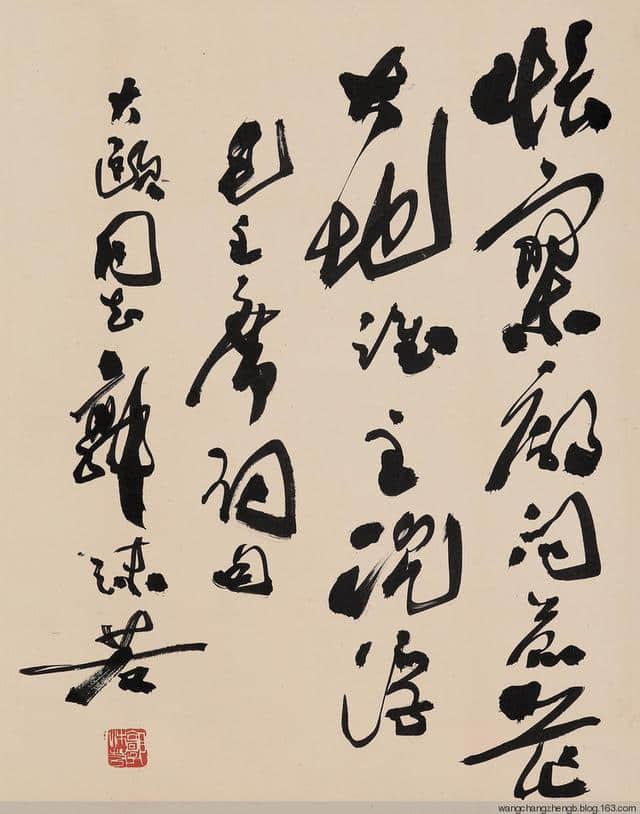 悵寥廓問蒼茫
大地誰主沉浮
毛主席詞句
大同志 郭沫若
郭沫若
wangchangzhengb.blog.163.com